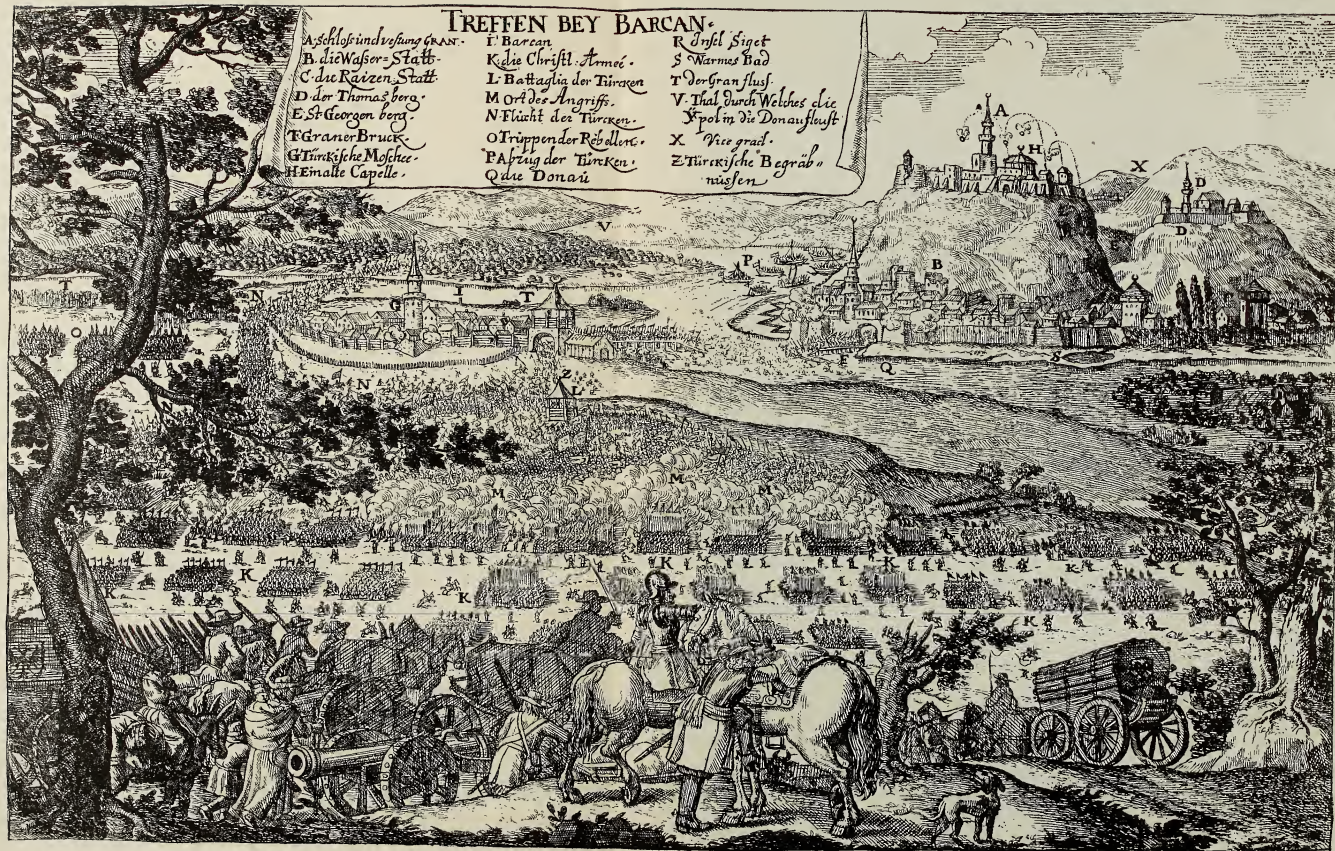 TREFFEN BEY BARCAN.
A. Schlos und vestung GRAN.
B. die Waßer=Statt.
C. die Raizen Statt
D der Thomas berg.
E St Georgen berg.
F Graner Bruck.
G Türckische Moschee.
H Ein alte Capelle.
I. Barcan
K. die Christl. Armée.
L. Battaglia der Türcken
M Ort des Angriffs.
N. Flucht der Türcken.
O Trüppen der Rebellen.
P Abzug der Türcken.
Q die Donaü
R Insel Siget
S Warmes Bad
T der Gran flus.
V. Thal durch Welches die
Ypol in die Donau fleust
X Vicegrad.
Z Türckische Begräb=
nüssen
A
H
X
D
D
V
P
B
T
N
G
I
T
O
F
S
Q
N
Z
L
M
M
M
K
K
K
K
K
K
K